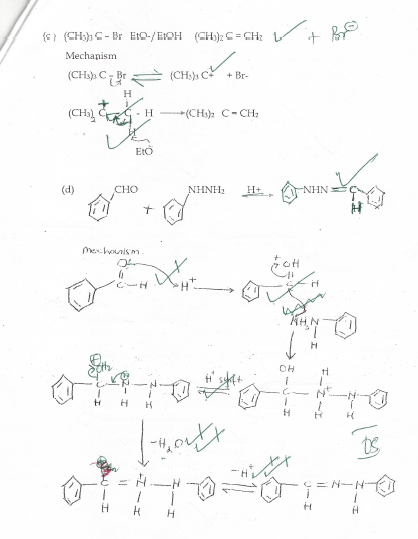 (c) (CH₃)₃ C - Br EtO-/EtOH (CH₃)₂ C = CH₂ + Br⊖
Mechanism
(CH₃)₃ C - Br ⇌ (CH₃)₃ C+ + Br-
H
(CH₃)₂ C - C - H ⟶ (CH₃)₂ C = CH₂
H
EtO
(d) CHO + NHNH₂ H+ NHN = C
H
Mechanism.
O + OH
C - H H+ ⟶ C - H
NH₂ N
H
OH H
OH₂
C - N - N H+ shift C - N+ - N
H H H H H H
-H₂O
C = N - N -H+ ⇌ C = N - N
H H H H H